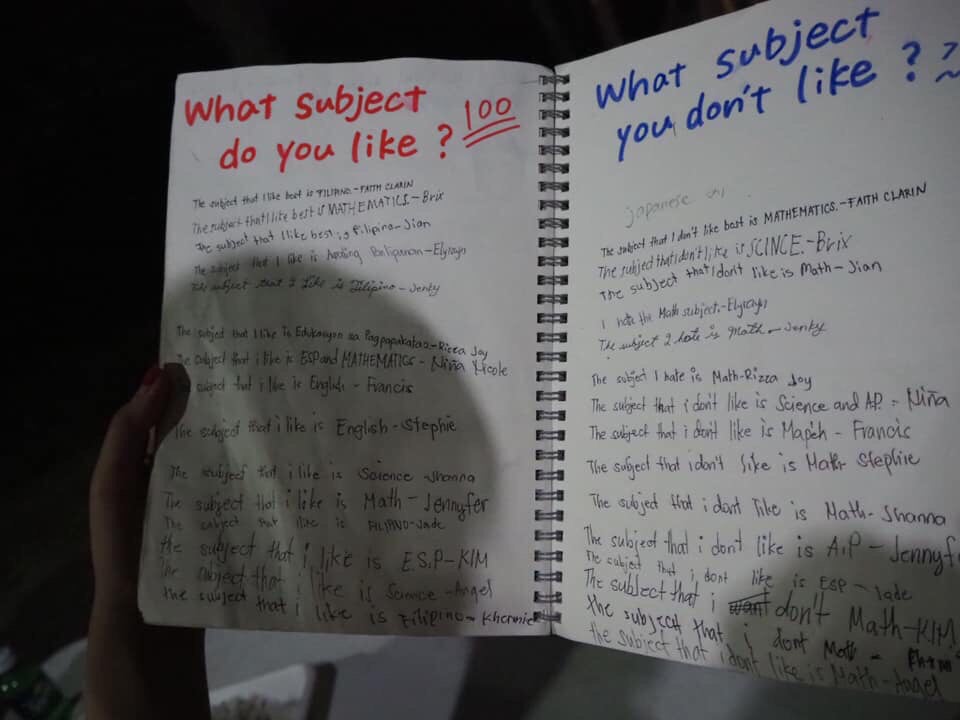 What subject
do you like?
100
The subject that I like best is FILIPINO.-FAITH CLARIN
The subject that I like best is MATHEMATICS.-Brix
The subject that I like best is Filipino-Jian
The subject that I like is Araling Panlipunan-Elyrayn
The subject that I like is Filipino-Jenky
The subjed that I like is Edukasyon sa Pagpapakatao.-Rizza Joy
The subject that i like is ESP and MATHEMATICS - Niña Nicole
subject that i like is English - Francis
The subject that i like is English-Stephie
The subject that i like is Science Shanna
The subject that i like is Math-Jennyfer
The subject that i like is FILIPINO-Jade
the subject that i like is E.S.P-KIM
The subject that i like is Science-Angel
the subject that i like is Filipino-
What subject
you don't like ??
japanese
The subject that I don't like best is MATHEMATICS.-FAITH CLARIN
The subject that I don't like is SCINCE.-Brix
The subject that I don't like is Math-Jian
I hate the Math subject.-Elyrayn
The subject I hate is Math-Jenky
The subject I hate is Math-Rizza Joy
The subject that i don't like is Science and A.P. - Niña
The subject that i don't like is Mapeh - Francis
The subject that i don't like is Math Stephie
The subjed that i dont like is Math-Shanna
The subject that i don't like is A.P-Jennyfe
The subject that i dont like is ESP-Jade
The subject that i don't Math-KIM
the subject that i dont Math -
the subject that i don't like is Math-Angel